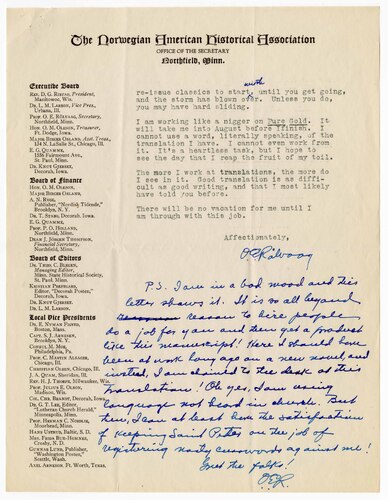 The Norwegian American Historical Association
OFFICE OF THE SECRETARY
Northfield, Minn.
Executive Board
REV. D. G. RISTAD, President,
Manitowoc, Wis.
DR. L. M. LARSON, Vice Pres.,
Urbana, Ill.
PROF. O. E. RÖLVAAG, Secretary,
Northfield, Minn.
HON. O. M. OLESON, Treasurer,
Ft. Dodge, Iowa.
MAJOR BIRGER OSLAND, Asst. Treas.,
134 N. LaSalle St., Chicago, Ill.
E. G. QUAMME,
1558 Fairmount Ave.,
St. Paul, Minn.
DR. KNUT GJERSET,
Decorah, Iowa.
Board of Finance
HON. O. M. OLESON.
MAJOR BIRGER OSLAND.
A. N. RYGG,
Publisher, "Nordisk Tidende",
Brooklyn, N. Y.
DR. T. STABO, Decorah, Iowa.
E. G. QUAMME.
PROF. P. O. HOLLAND,
Northfield, Minn.
DEAN J. JÖRGEN THOMPSON,
Financial Secretary,
Northfield, Minn.
Board of Editors
DR. THEO. C. BLEGEN,
Managing Editor,
Minn. State Historical Society,
St. Paul, Minn.
KRISTIAN PRESTGARD,
Editor, "Decorah Posten,"
Decorah, Iowa.
DR. KNUT GJERSET.
DR. L. M. LARSON.
Local Vice Presidents
DR. E. NYMAN FIGVED,
Boston, Mass.
CAPT. S. J. ARNESEN,
Brooklyn, N. Y.
CONSUL M. MOE,
Philadelphia, Pa.
PROF. C. MARTIN ALSAGER,
Chicago, Ill.
CHRISTIAN OLSEN, Chicago, Ill.
J. A. QUAM, Sheridan, Ill.
REV. H. J. THORPE, Milwaukee, Wis.
PROF. JULIUS E. OLSON,
Madison, Wis.
COL. CHR. BRANDT, Decorah, Iowa.
DR. G. T. LEE, Editor,
"Lutheran Church Herald,"
Minneapolis, Minn.
PROF. HERMAN C. NORDLIE,
Moorhead, Minn.
HANS USTRUD, Baltic, S. D.
MRS. FRIDA BUE-HOMNES,
Crosby, N. D.
GUNNAR LUND, Publisher,
"Washington Posten,"
Seattle, Wash.
AXEL ARNESON, Ft. Worth, Texas.
with
re-issue classics to start, until you get going,
and the storm has blown over. Unless you do,
you may have hard sliding.
I am working like a nigger on Pure Gold. It
will take me into August before I finish. I
cannot use a word, literally speaking, of the
translation I have. I cannot even work from
it. It's a heartless task, but I hope to
see the day that I reap the fruit of my toil.
The more I work at translations, the more do
I see in it. Good translation is as diffi-
cult as good writing, and that I most likely
have told you before.
There will be no vacation for me until I
am through with this job.
Affectionately,
O E Rölvaag
P.S. I am in a bad mood and this
letter shows it. It is so all beyond
reason to hire people
do a job for you and then get a product
like this manuscript! Here I should have
been at work long ago on a new novel, and
insted, I am chained to the desk at this
translation! Oh yes, I am using
language not heard in church. But
then, I can at least have the satisfaction
of keeping Saint Peter on the job of
registering nasty cusswords against me!
Greet the folks!
OER